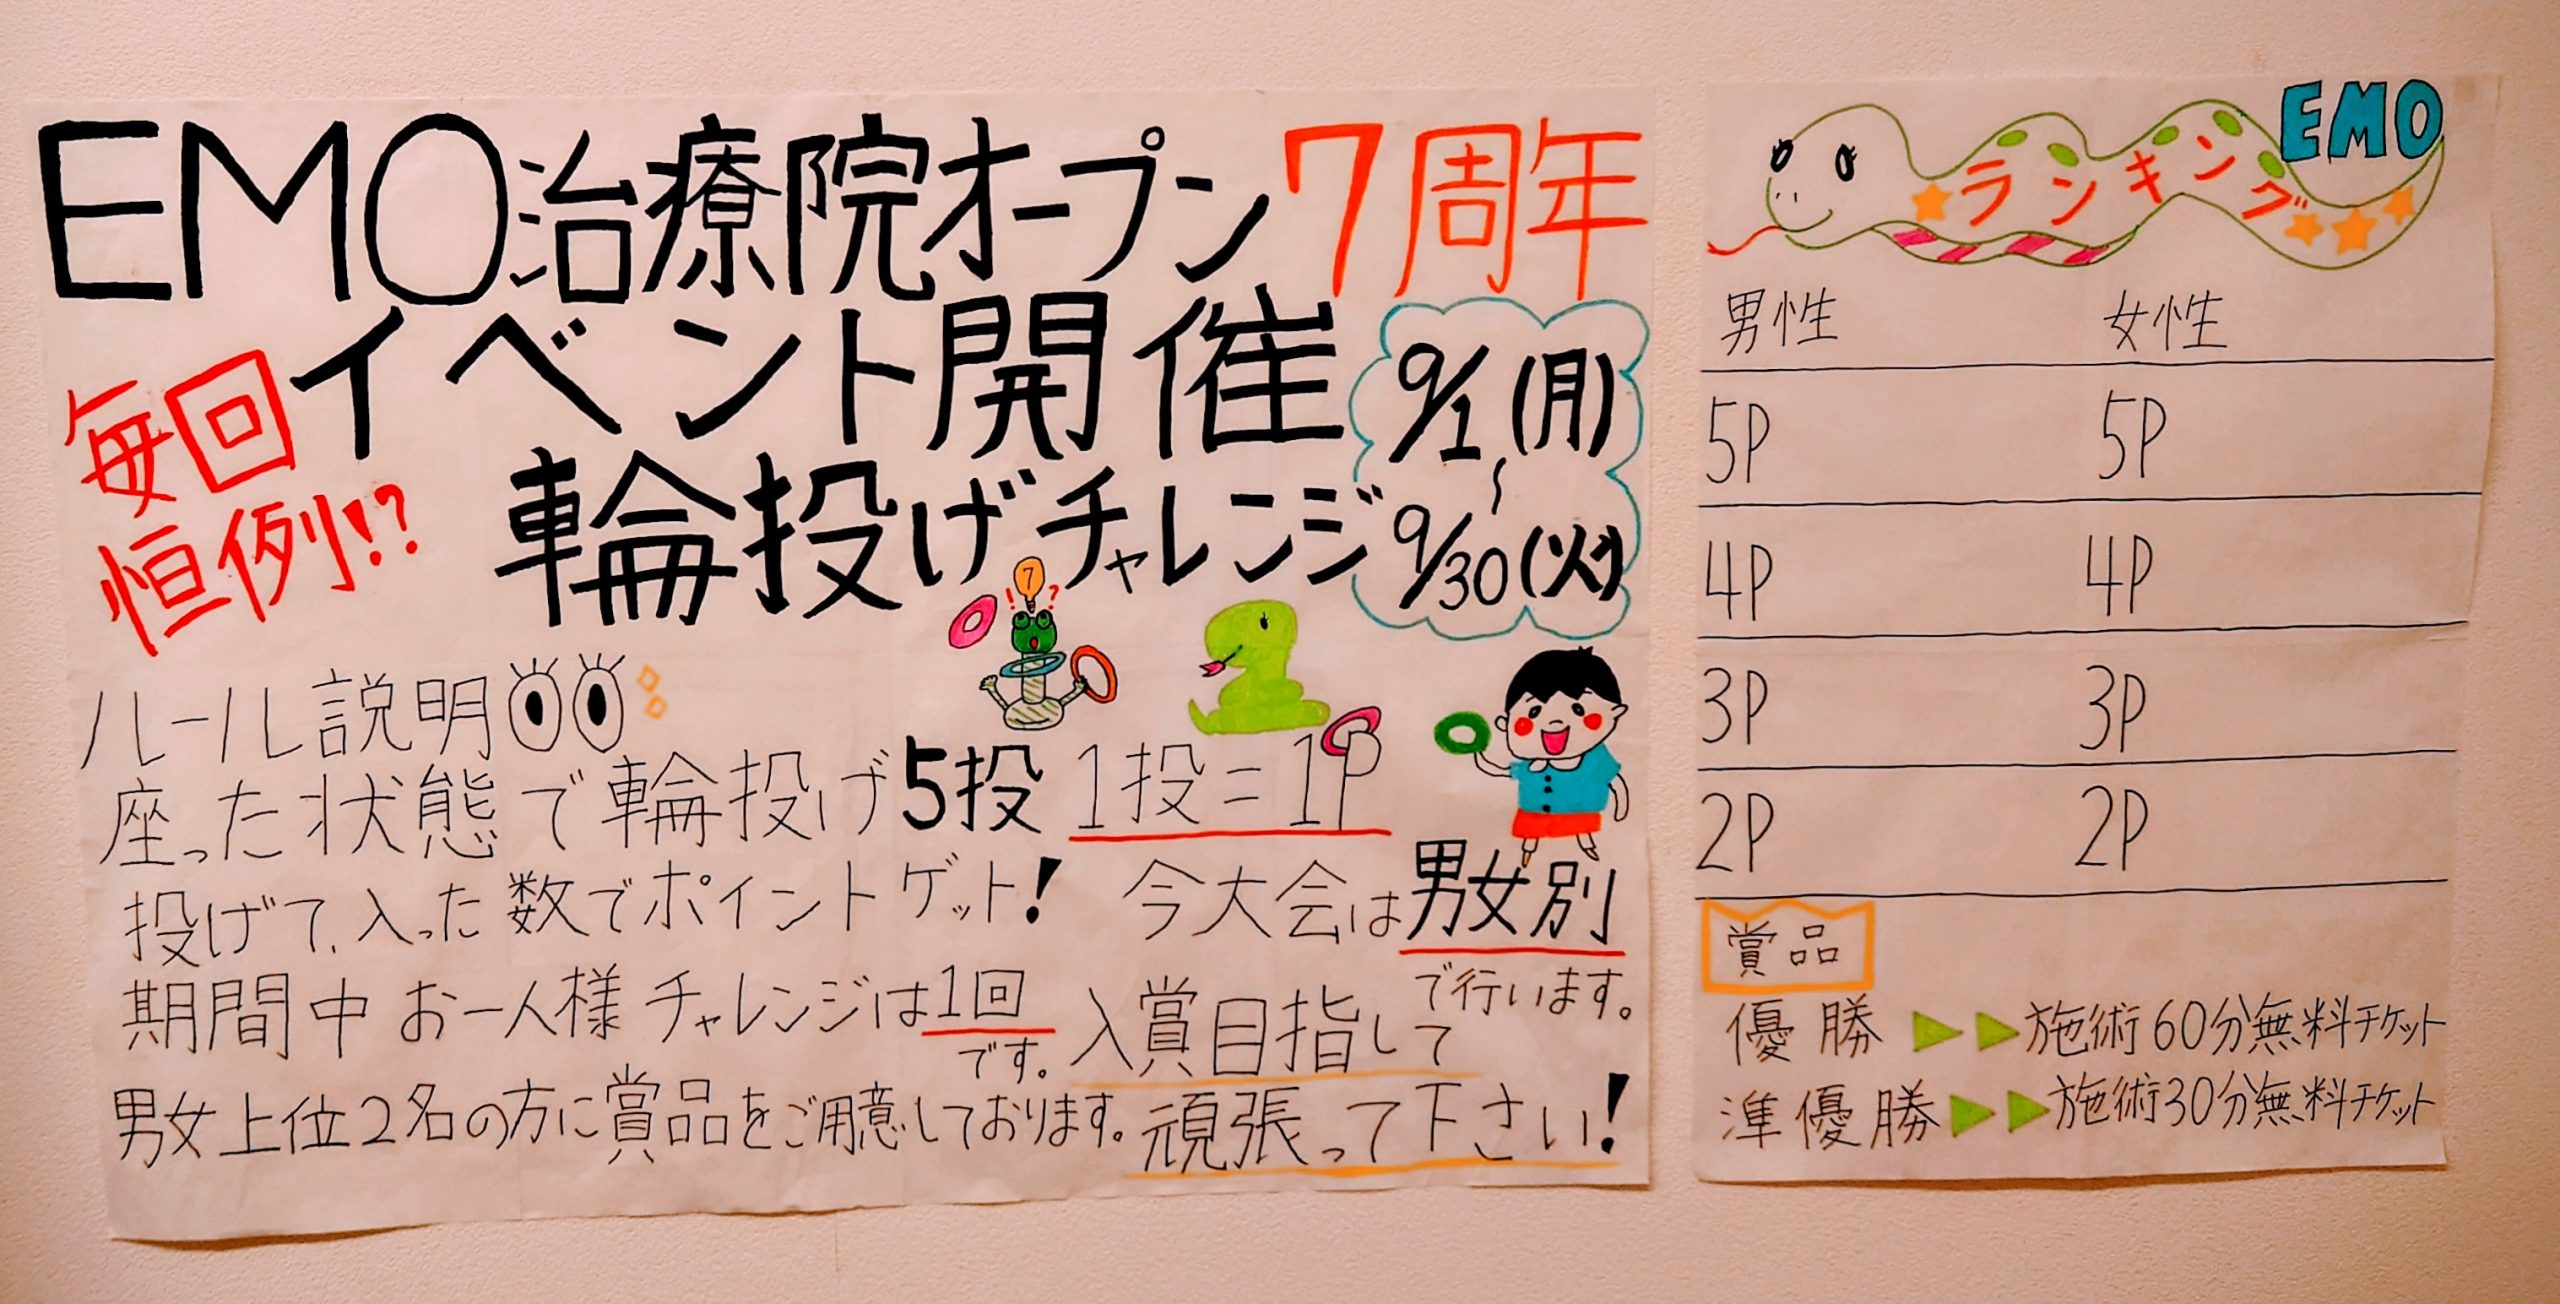 EMO治療院オープン7周年
イベント開催
毎回
恒例!?
輪投げチャレンジ
9/1(月)
〜
9/30(火)
7
!?
ルール説明
座った状態で輪投げ5投 1投=1P
投げて、入った数でポイントゲット!
今大会は男女別
で行います。
期間中お一人様チャレンジは1回
です。
男女上位2名の方に賞品をご用意しております。
入賞目指して
頑張って下さい!
EMO
ランキング
男性 女性
5P 5P
4P 4P
3P 3P
2P 2P
賞品
優勝▶▶施術60分無料チケット
準優勝▶▶施術30分無料チケット